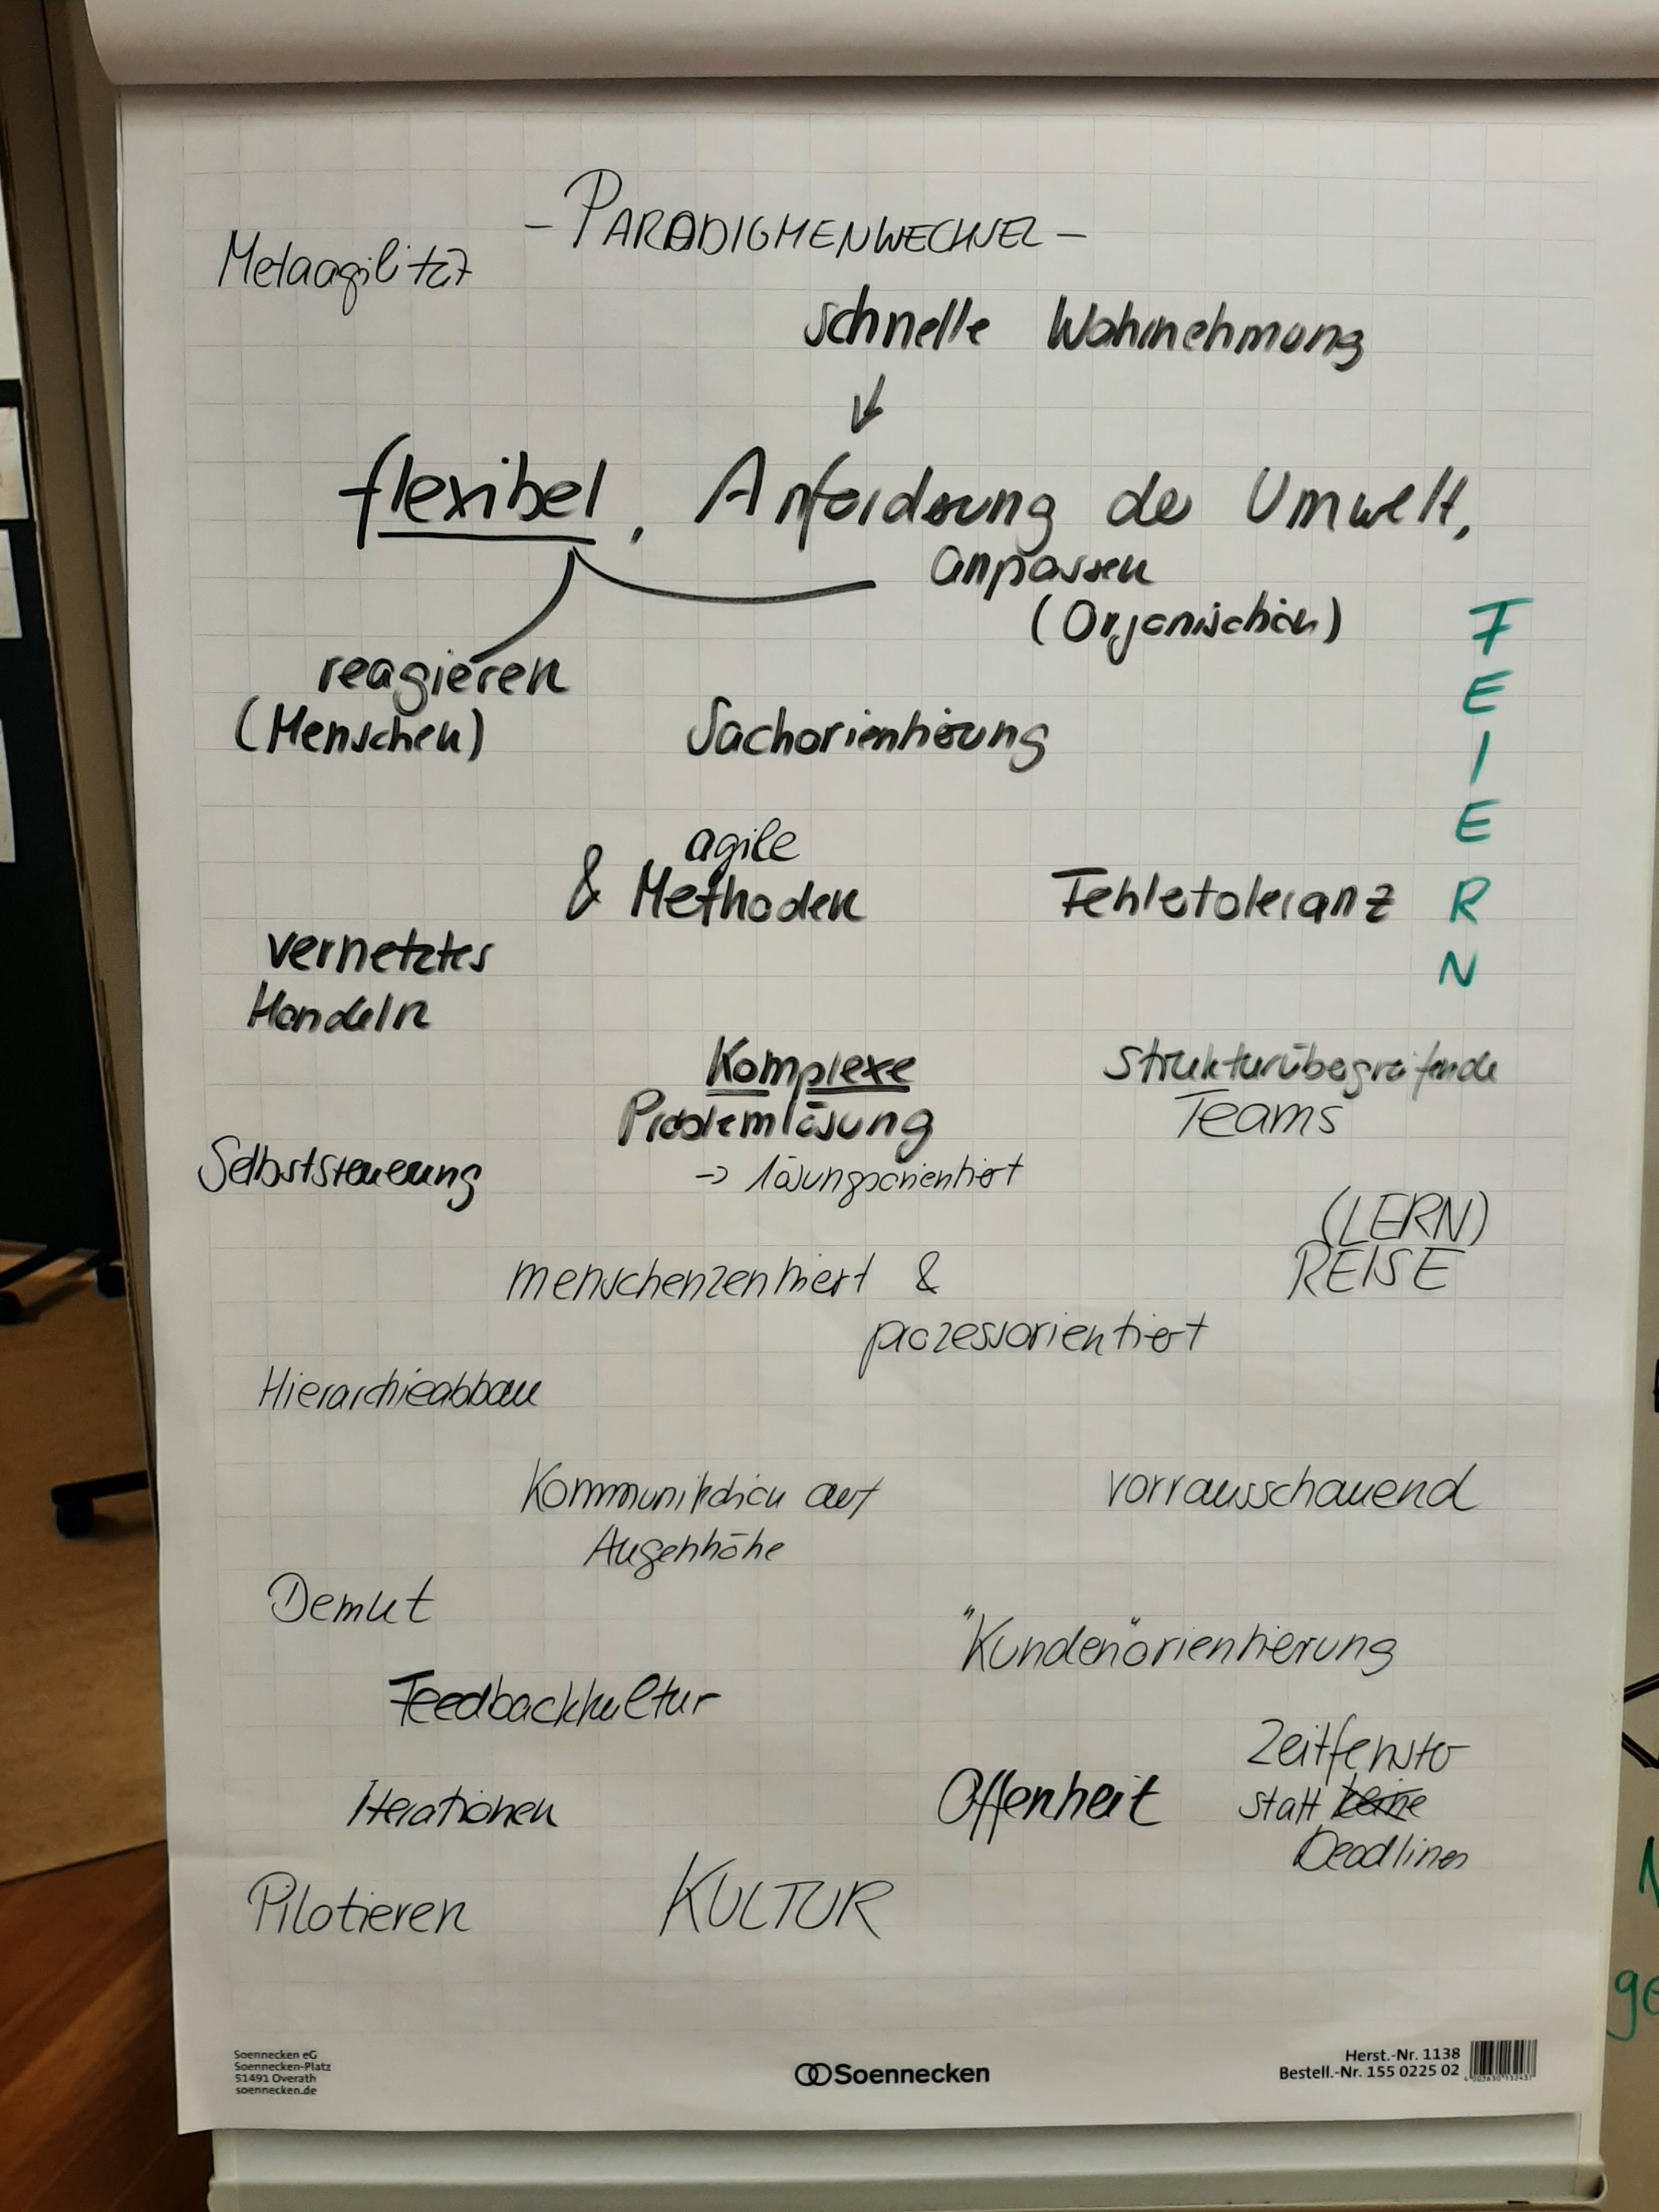 - PARADIGMENWECHSEL -
Metaagilität
schnelle Wahrnehmung
↓
flexibel, Anforderung der Umwelt,
anpassen
(Organisation)
reagieren
(Menschen)
Sachorientierung
FEIERN
agile
& Methoden
Fehlertoleranz
vernetztes
Handeln
Komplexe
Problemlösung
→ lösungsorientiert
Strukturübergreifende
Teams
Selbststeuerung
(LERN)
REISE
menschenzentriert &
prozessorientiert
Hierarchieabbau
Kommunikation auf
Augenhöhe
vorrausschauend
Demut
"Kunden"orientierung
Feedbackkultur
Zeitfenster
statt keine
Deadlines
Offenheit
Iterationen
Pilotieren
KULTUR
Soennecken eG
Soennecken-Platz
51491 Overath
soennecken.de
Soennecken
Herst.-Nr. 1138
Bestell.-Nr. 155 0225 02
ge